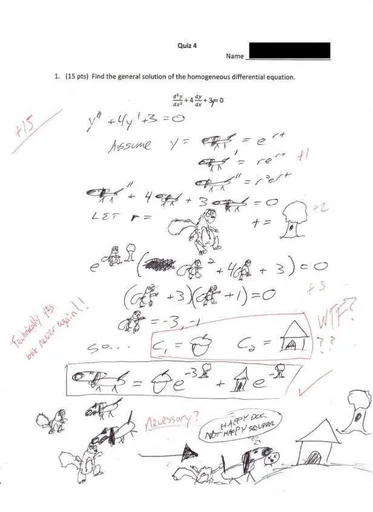 Quiz 4
Name
1. (15 pts) Find the general solution of the homogeneous differential equation.
d²y/dx² + 4 dy/dx + 3y = 0
+15
y'' + 4y' + 3 = 0
ASSUME y = = e^rt
' = re^rt +1
'' = r²e^rt
'' + 4 ' + 3 = 0
LET r = t = +2
e ( ² + 4 + 3) = 0
( + 3)( + 1) = 0 +3
= -3, -1
Technically yes but never again!!
WTF?
??
SO... C₁ = C₂ =
= e^-3 + e^-
Necessary?
HAPPY DOG
NOT HAPPY